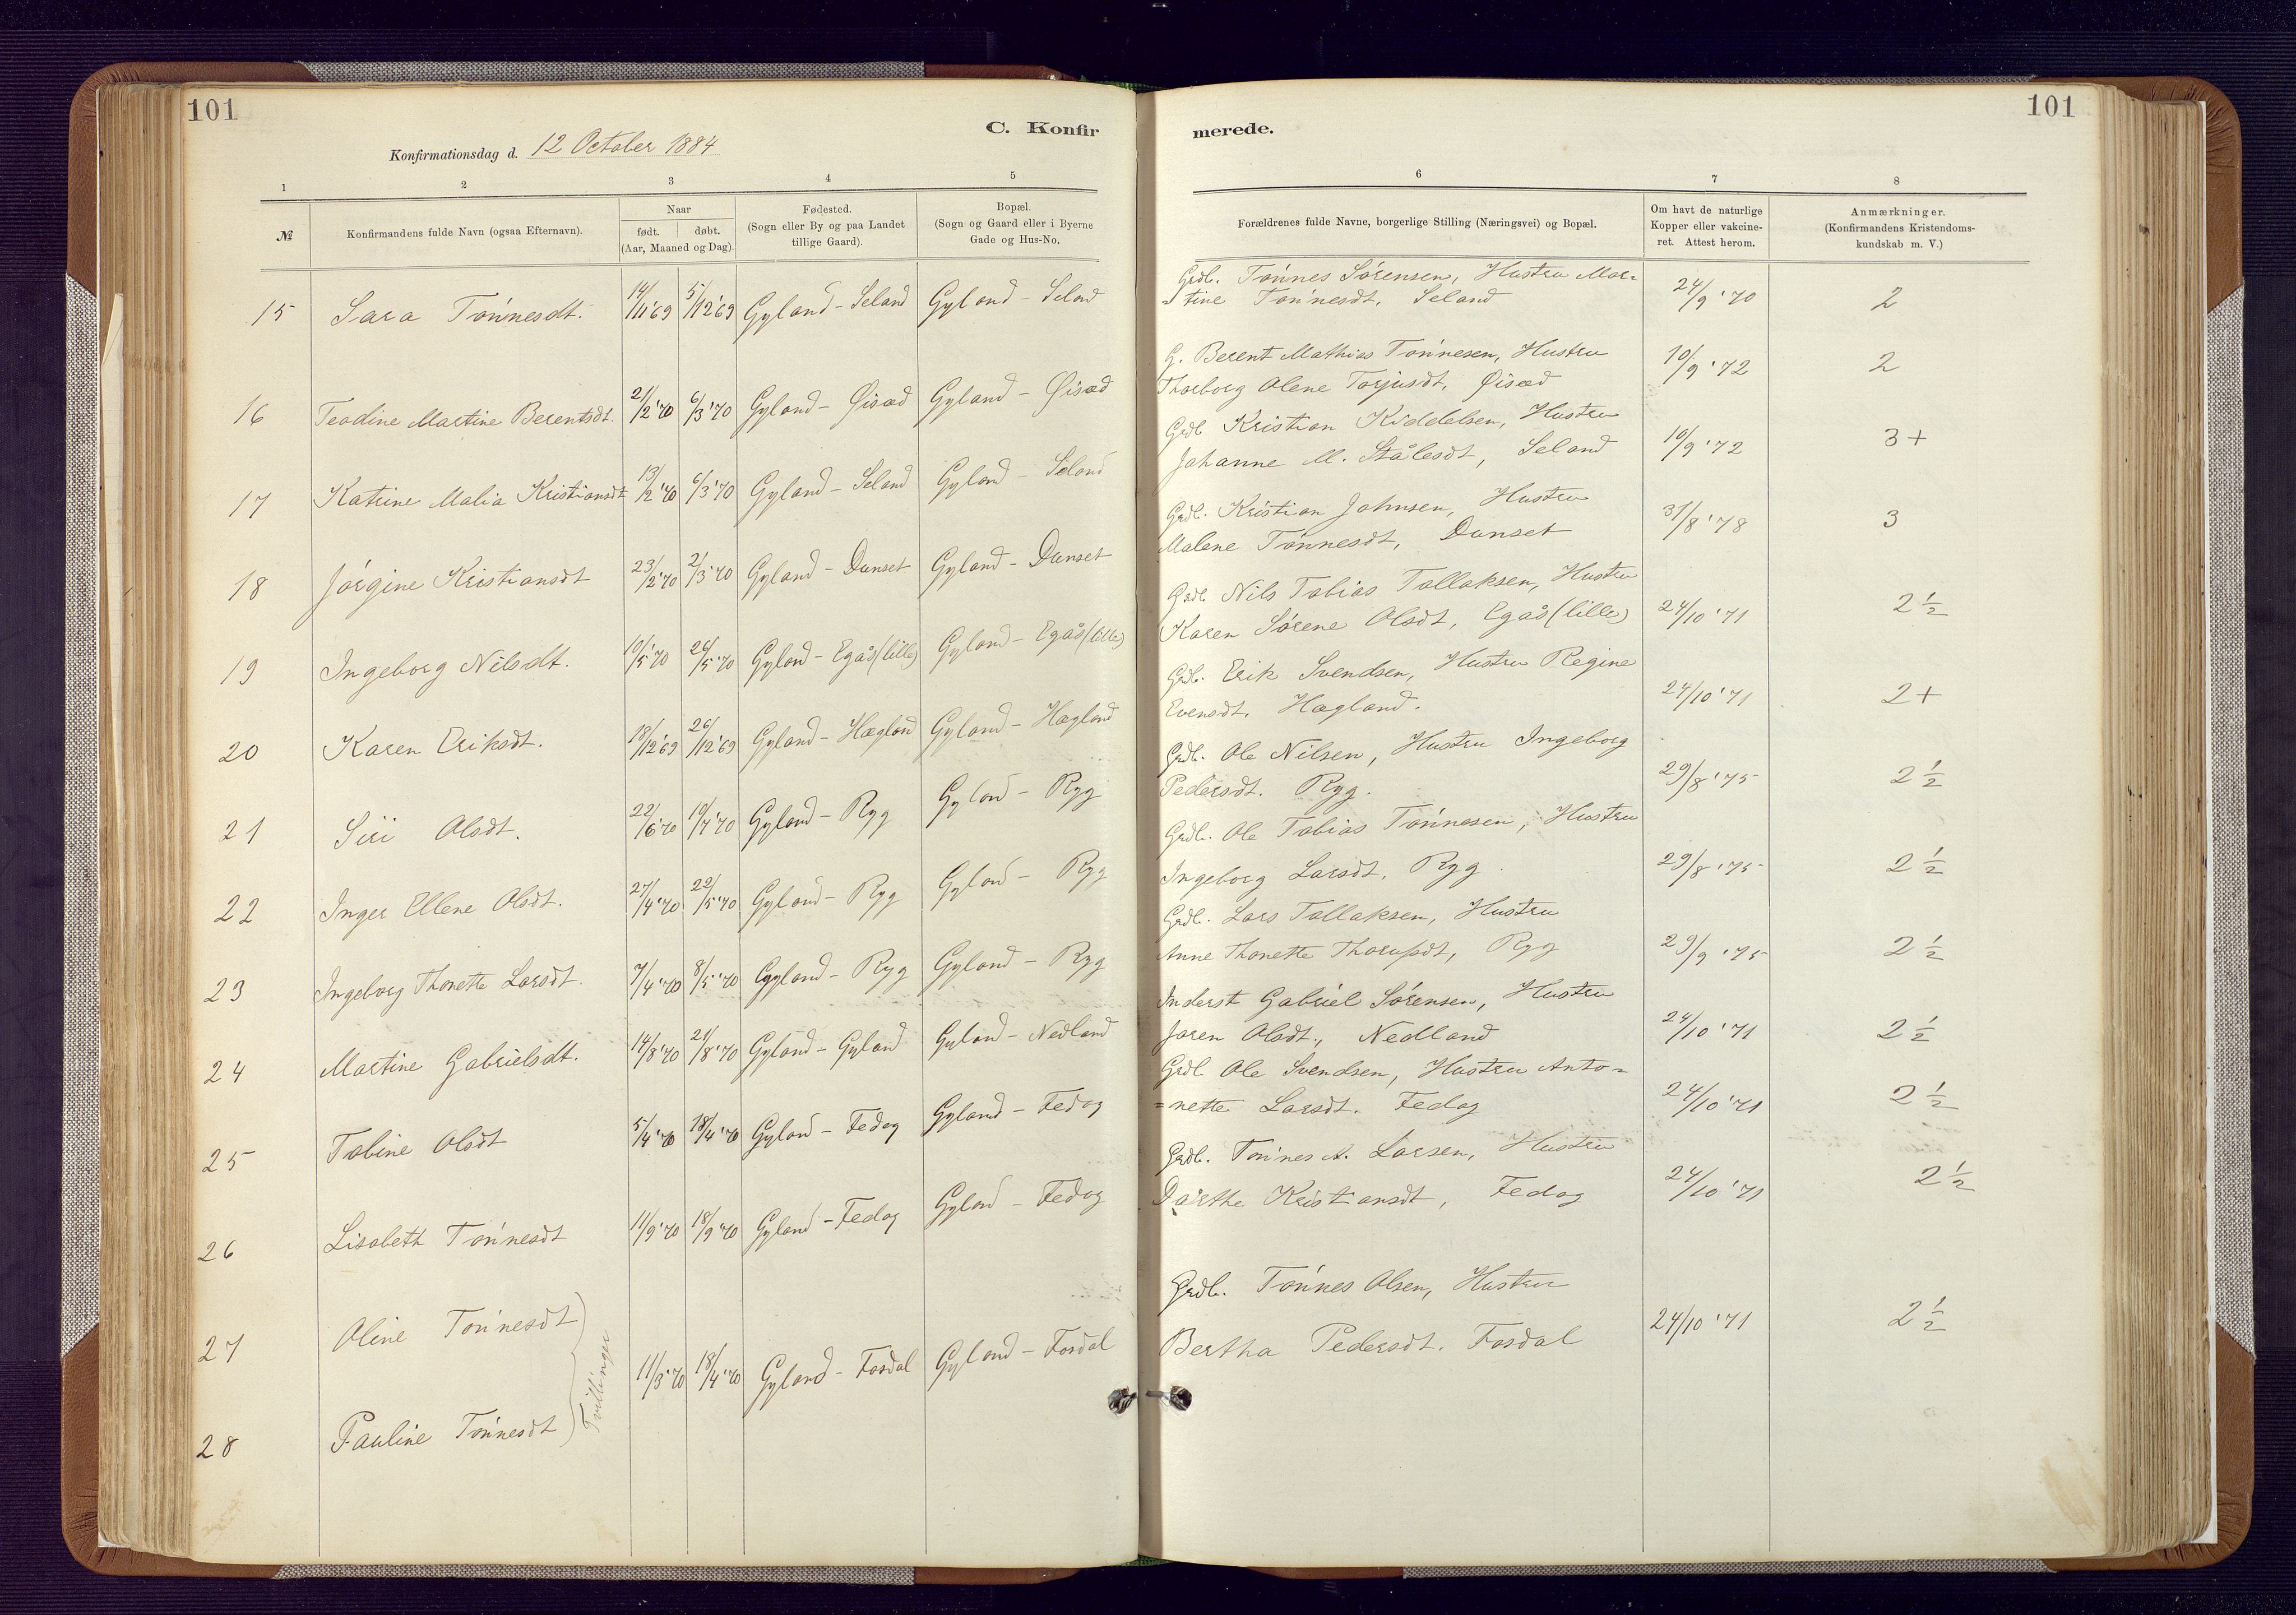 101
C. Konfir
merede.
101
Konfirmationsdag d. 12 October 1884
1 2 3 4 5
6 7 8
№ Konfirmandens fulde Navn (ogsaa Efternavn). Naar født. døbt. (Aar, Maaned og Dag). Fødested. (Sogn eller By og paa Landet tillige Gaard). Bopæl. (Sogn og Gaard eller i Byerne Gade og Hus-No.
Forældrenes fulde Navne, borgerlige Stilling (Næringsvei) og Bopæl. Om havt de naturlige Kopper eller vakcineret. Attest herom. Anmærkninger. (Konfirmandens Kristendomskundskab m. V.)
15 Sara Tönnesdt. 14/11'69 5/12'69 Gyland - Seland Gyland - Seland
Grdb. Tönnes Sörensen, Hustru Mar=
=tine Tönnesdt. Seland 24/9 '70 2
16 Teodine Martine Berentsdt. 21/2'70 6/3'70 Gyland - Øisæd Gyland - Øisæd
G. Berent Mathias Tönnesen, Hustru
Thorborg Olene Torjusdt, Øisæd 10/9 '72 2
17 Katrine Malia Kristiansdt 13/2'70 6/3'70 Gyland - Seland Gyland - Seland
Grdb Kristian Kiddelsen, Hustru
Johanne M. Stålesdt, Seland 10/9 '72 3+
18 Jörgine Kristiansdt 23/2'70 2/3'70 Gyland - Dunset Gyland - Dunset
Grdb. Kristian Johnsen, Hustru
Malene Tönnesdt, Dunset 31/8 '78 3
19 Ingeborg Nilsdt. 10/5'70 26/5'70 Gyland - Egås (lille) Gyland - Egås (lille)
Grdb. Nils Tobias Tallaksen, Hustru
Karen Sörene Olsdt, Egås (lille) 24/10 '71 2 1/2
20 Karen Eriksdt. 18/12'69 26/12'69 Gyland - Hægland Gyland - Hægland
Grdb. Erik Svendsen, Hustru Regine
Evensdt. Hægland. 24/10 '71 2+
21 Siri Olsdt. 22/6'70 10/7'70 Gyland - Ryg Gyland - Ryg
Grdb. Ole Nilsen, Hustru Ingeborg
Pedersdt. Ryg. 29/8 '75 2 1/2
22 Inger Ellene Olsdt. 27/4'70 22/5'70 Gyland - Ryg Gyland - Ryg
Grdb. Ole Tobias Tönnesen, Hustru
Ingeborg Larsdt, Ryg. 29/8 '75 2 1/2
23 Ingeborg Thonette Larsdt. 7/4'70 8/5'70 Gyland - Ryg Gyland - Ryg
Grdb. Lars Tallaksen, Hustru
Anne Thonette, Ryg 29/9 '75 2 1/2
24 Martine Gabrielsdt. 14/8'70 21/8'70 Gyland - Gyland Gyland - Nedland
Inderst Gabriel Sörensen, Hustru
Joren Olsdt., Nedland 24/10 '71 2 1/2
25 Tobine Olsdt 5/4'70 18/4'70 Gyland - Fedog Gyland - Fedog
Grdb. Ole Svendsen, Hustru Anto=
=nette Larsdt. Fedog 24/10 '71 2 1/2
26 Lisabeth Tönnesdt 11/9'70 18/9'70 Gyland - Fedog Gyland - Fedog
Grdb. Tönnes A. Larsen, Hustru
Dorthe Kristiansdt, Fedog 24/10 '71 2 1/2
27 Oline Tönnesdt
28 Pauline Tönnesdt
Tvillinger
11/3'70 18/4'70 Gyland - Fosdal Gyland - Fosdal
Grdb. Tönnes Olsen, Hustru
Bertha Pedersdt. Fosdal 24/10 '71 2 1/2